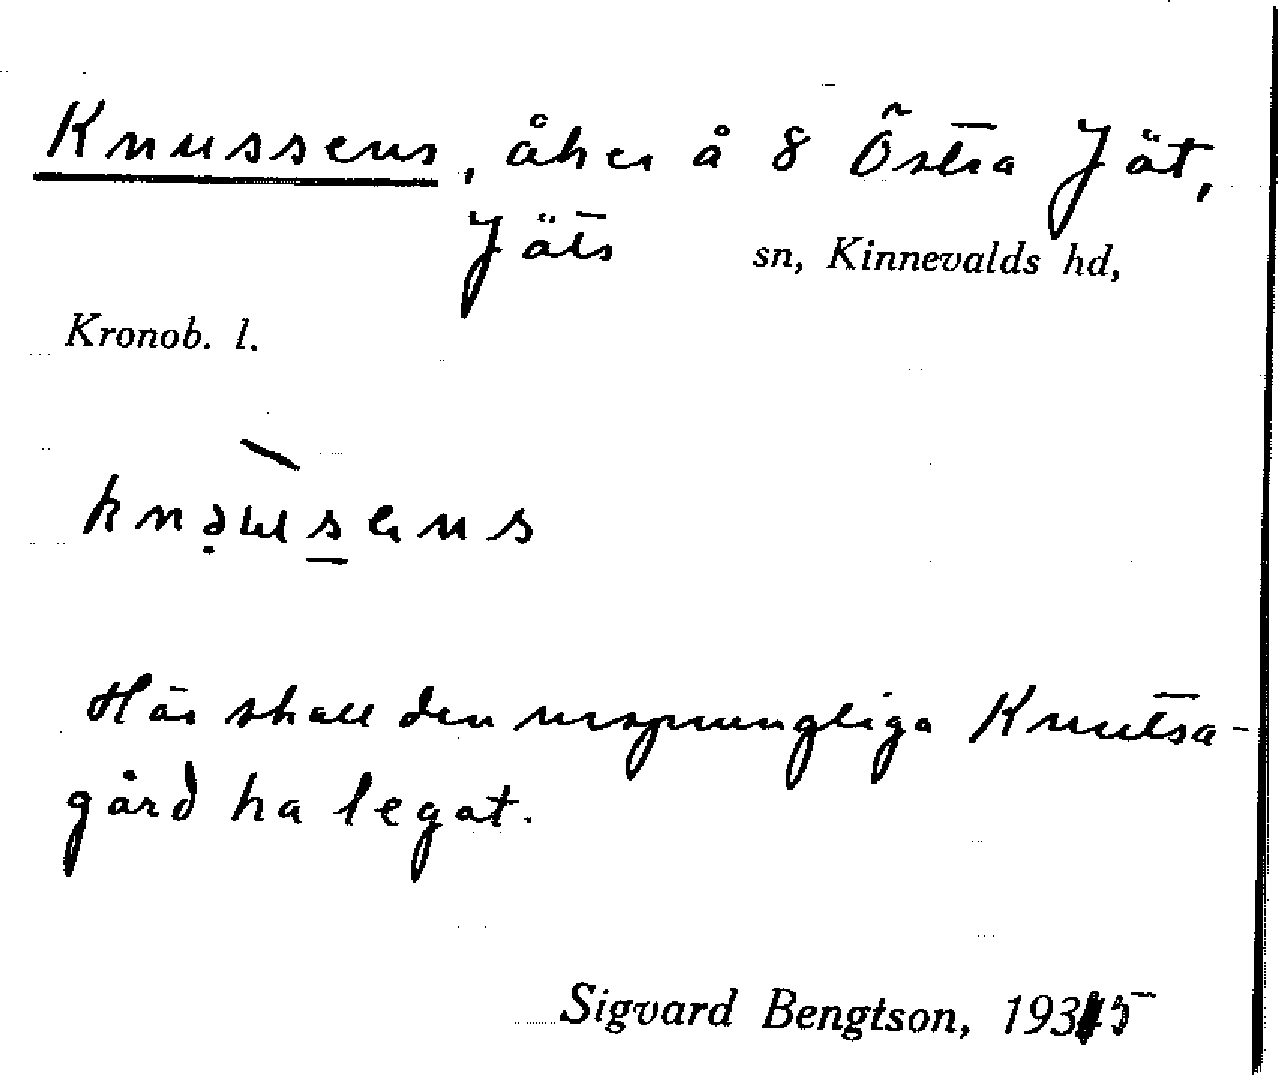 Knussens, åker å 8 Östra Jät,
Jäts sn, Kinnevalds hd,
Kronob. l.
Här skall den ursprungliga Knutsa-
gård ha legat.
Sigvard Bengtson, 1935